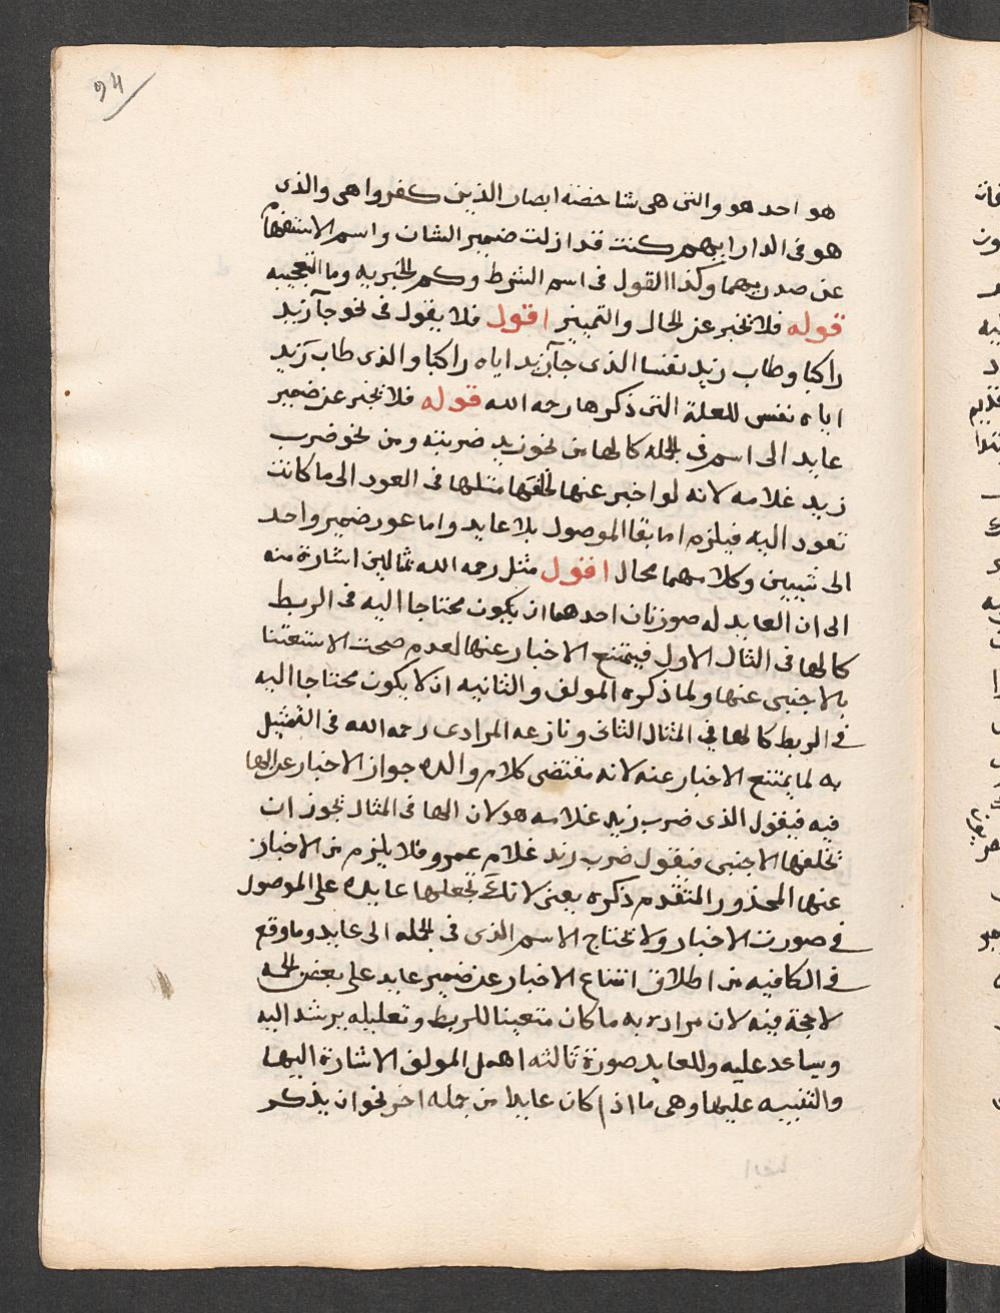 94
هو احد هو والتى هى شاخصة ابصار الذين كفروا هى والذى
هو فى الدار ايهم كنت قد ازلت ضمير الشان واسم الاستفهام
عن صدريهما وكذا القول فى اسم الشرط وكم الخبريه وما التعجبيه
قوله فلا تخبر عن الحال والتمييز اقول فلا يقول فى نحو جآ زيد
راكبا وطاب زيد نفسا الذى جآ زيد اياه راكبا والذى طاب زيد
اياه نفس للعلة التى ذكرها رحمه الله قوله فلا تخبر عن ضمير
عايد الى اسم فى الجمله كالها من نحو زيد ضربته ومن نحو ضرب
زيد غلامه لانه لو اخبر عنها لخلفها مثلها فى العود الى ما كانت
تعود اليه فيلزم اما بقا الموصول بلا عايد واما عود ضمير واحد
الى شيين وكلاهما محال اقول مثل رحمه الله بمثالين اشارة منه
الى ان العايد له صورتان احدهما ان يكون محتاجا اليه فى الربط
كالها فى المثال الاول فيمتنع الاخبار عنها لعدم صحت الاستغنا
بالاجنبى عنها ولما ذكره المولف والثانيه ان لا يكون محتاجا اليه
فى الربط كالها فى المثال الثانى ونازعه المرادى رحمه الله فى التمثيل
به لما يمتنع الاخبار عنه لانه مقتضى كلام والده جواز الاخبار عن الها
فيه فيقول الذى ضرب زيد غلامه هو لان الها فى المثال تجوز ان
تخلفها الاجنبى فيقول ضرب زيد غلام عمرو فلا يلزم من الاخبار
عنها المحذور المتقدم ذكره يعنى لانك تجعلها عايده على الموصول
فى صورت الاخبار ولا تحتاج الاسم الذى فى الجمله الى عايد وما وقع
فى الكافيه من اطلاق امتناع الاخبار عن ضمير عايد على بعض الجمله
لا حجة فيه لان مراده به ما كان متعينا للربط وتعليله يرشد اليه
ويساعد عليه وللعايد صورة ثالثه اهمل المولف الاشارة اليها
والتنبيه عليها وهى ما اذا كان عايدا من جمله اخر نحو ان يذكر